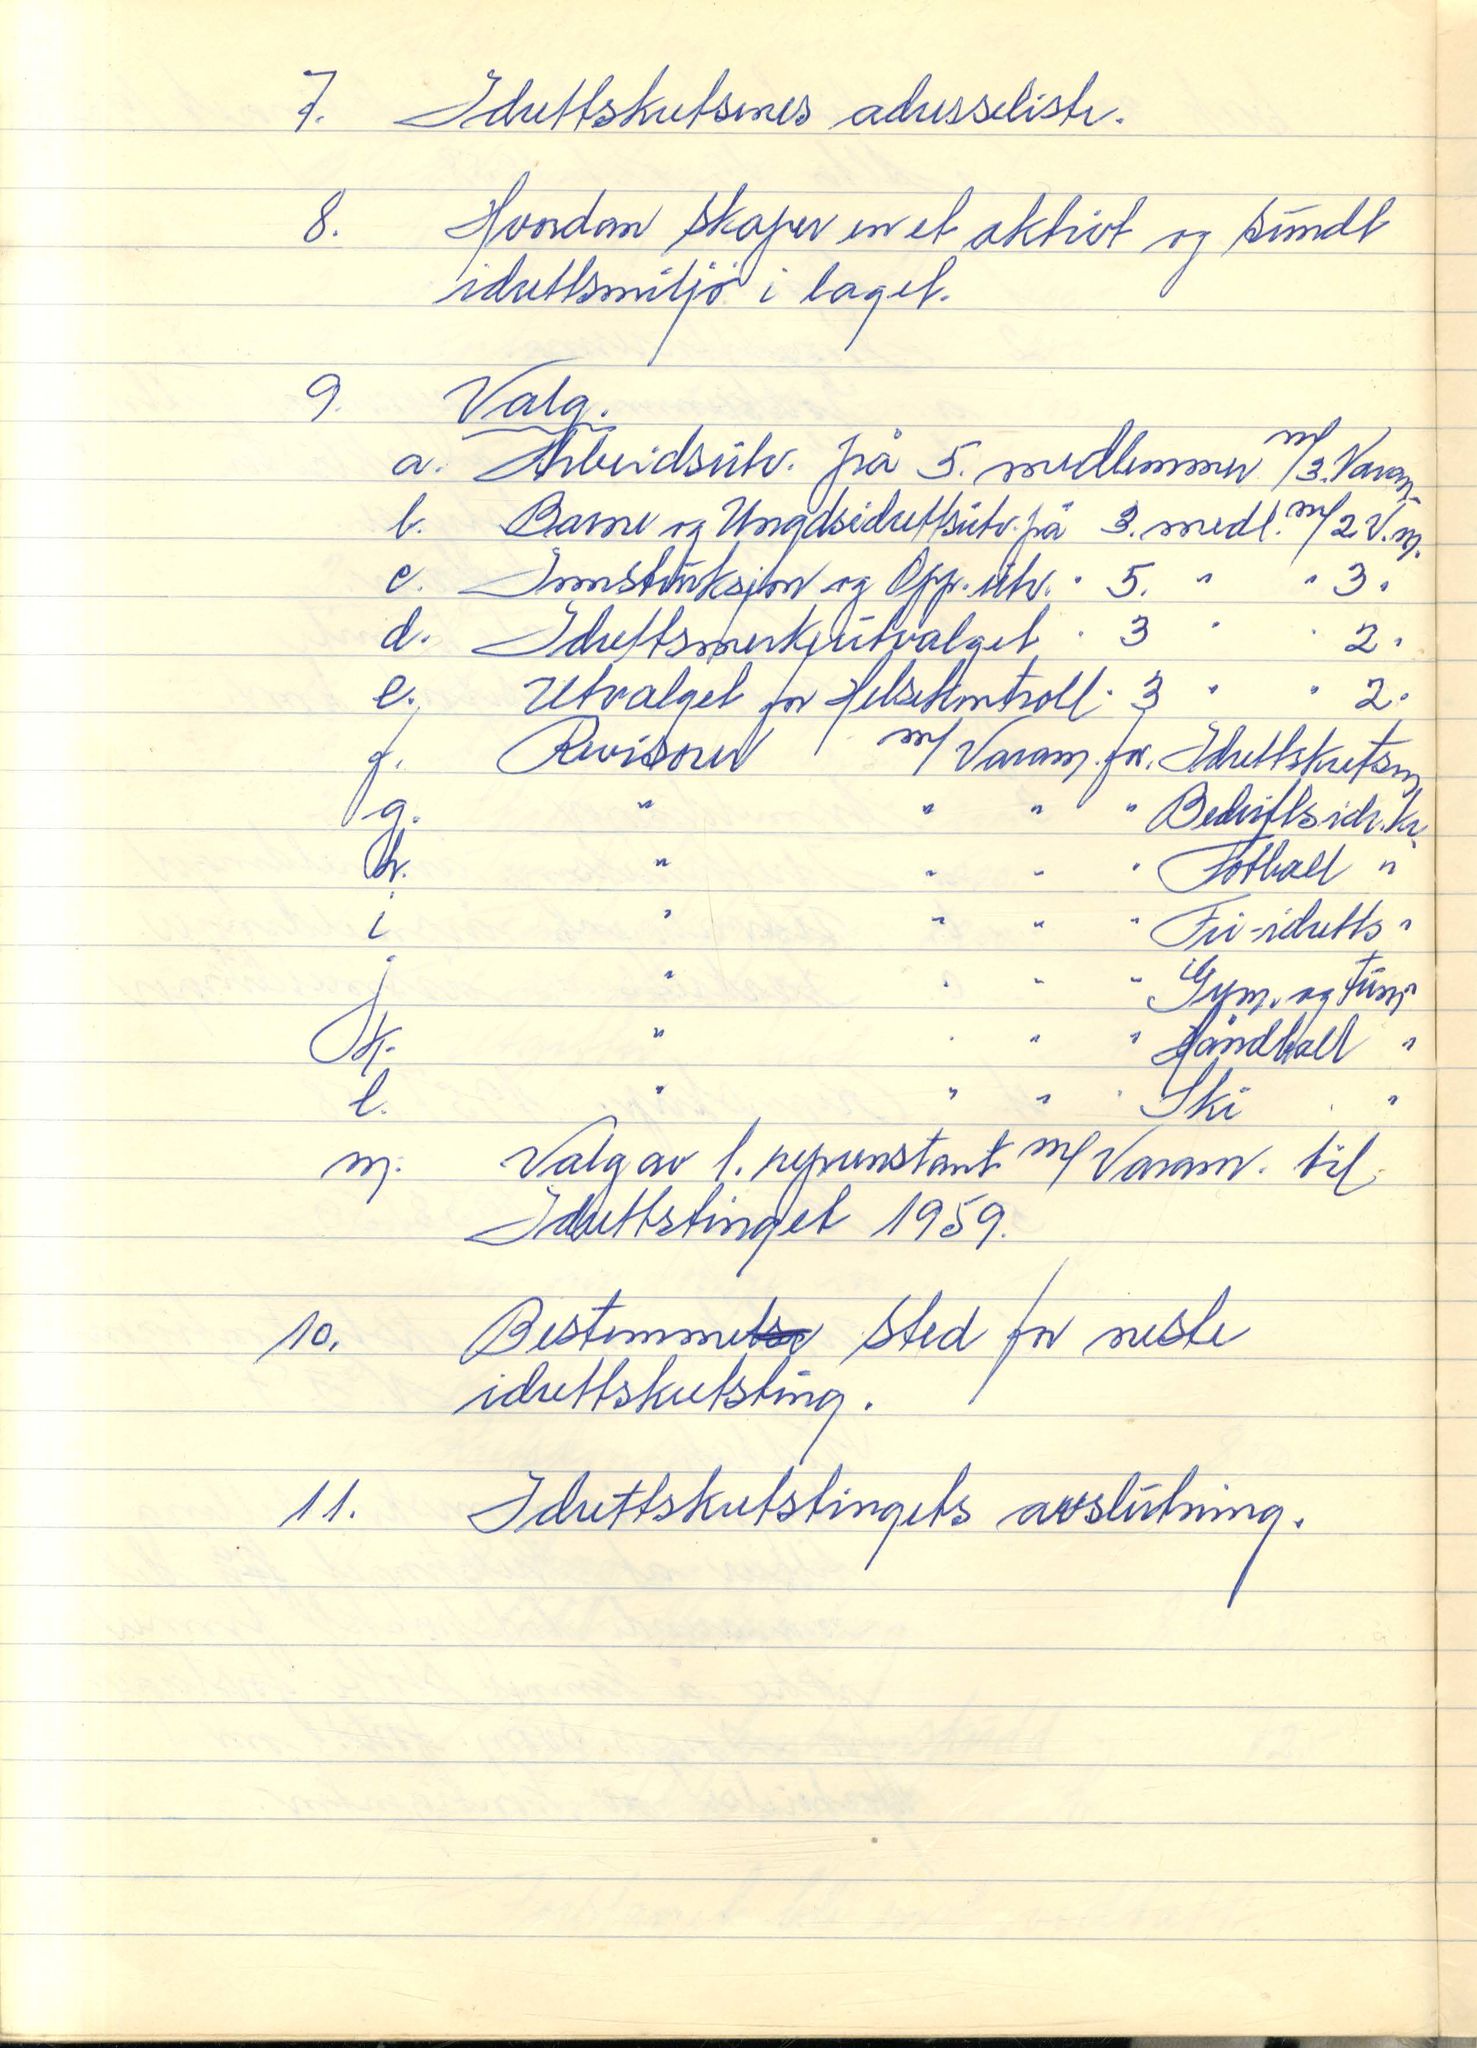 7. Idrettskretsenes adresseliste.
8. Hvordan skaper en et aktivt og sundt
idrettsmiljö i laget.
9. Valg.
a. Arbeidsutv. på 5. medlemmer m/3. Varam.
b. Barne og Ungdsidrettsutv. på 3. medl. m/2. V.m.
c. Innstruksjon og Opp. utv. " 5. " " 3 "
d. Idrettsmerkeutvalget " 3 " " 2 "
e. Utvalget for Helsekontroll " 3 " " 2 "
f. Revisorer m/ Varam. for. Idrettskretsen
g. " " " " Bedriftsidr. kr.
h. " " " " Fotball "
i " " " " Fri-idretts "
j " " " " Gym. og turn "
k. " " " " Håndball "
l. " " " " Ski "
m. Valg av 1. reprenstant m/ Varam. til
Idrettstinget 1959.
10. Bestemmelse sted for neste
idrettskretsting.
11. Idrettskretstingets avslutning.